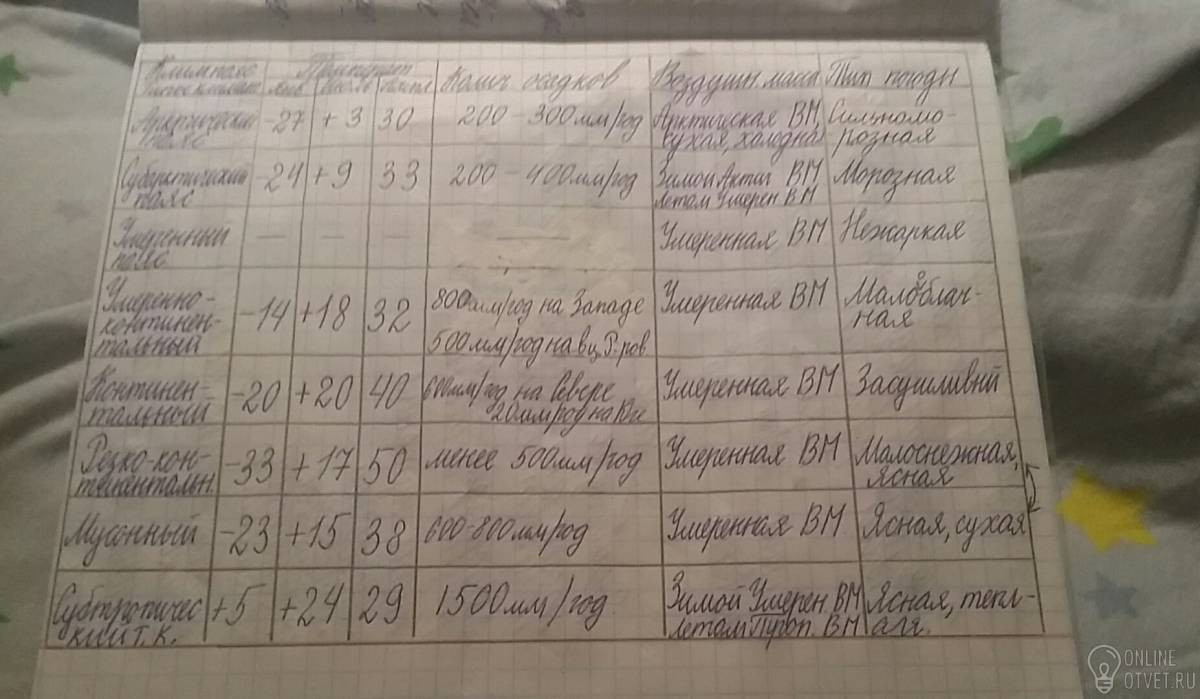 Климатич. Температ. Колич осадков Воздушн. масса Тип погоды
янв. июль
Арктический -27 +3 30 200-300мм/год Арктическая ВМ, Сильномо-
пояс сухая, холодная розная
Субарктический -24 +9 33 200-400мм/год Зимой Актич ВМ Морозная
пояс летом Умерен ВМ
Умеренный — — — — Умеренная ВМ Нежаркая
пояс
Умеренно- -14 +18 32 800мм/год на Западе Умеренная ВМ Малооблач-
континен- 500мм/год на ная
тальный
Континен- -20 +20 40 600мм/год на Севере Умеренная ВМ Засушливый
тальный на Юге
Резко-кон- -33 +17 50 менее 500мм/год Умеренная ВМ Малоснежная,
тинентальн. ясная
Мусонный -23 +15 38 600-800мм/год Умеренная ВМ Ясная, сухая
Субтропичес +5 +24 29 1500мм/год Зимой Умерен. ВМ Ясная, тепл-
кий т.к. летом ВМ ая.
ONLINE
OTVET.RU